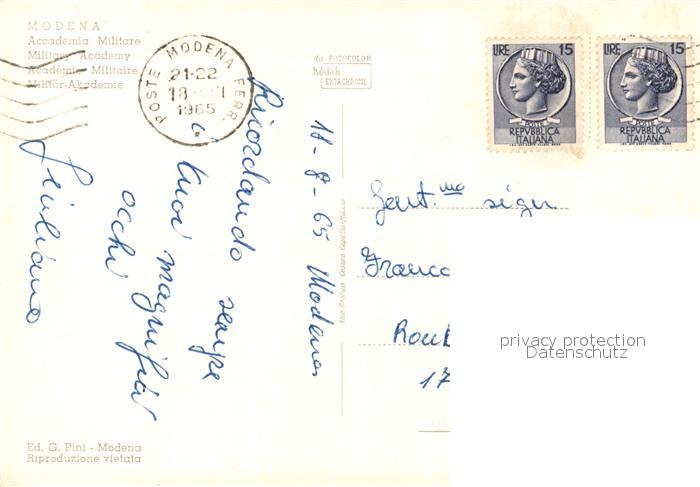 MODENA
Accademia Militare
Military Academy
Académie Militaire
Militär-Akademie
POSTE MODENA FERR.
21-22
18
1965
da FOTOCOLOR
Kodak
EKTACHROME
LIRE 15
POSTE
REPVBBLICA
ITALIANA
LIRE 15
POSTE
REPVBBLICA
ITALIANA
18-8-65 Modena
Ricordando sempre
i tuoi magnifici
occhi
Giuliano
Gent.ma sign
Franca
Roub
17
privacy protection
Datenschutz
Ed. G. Pini - Modena
Riproduzione vietata